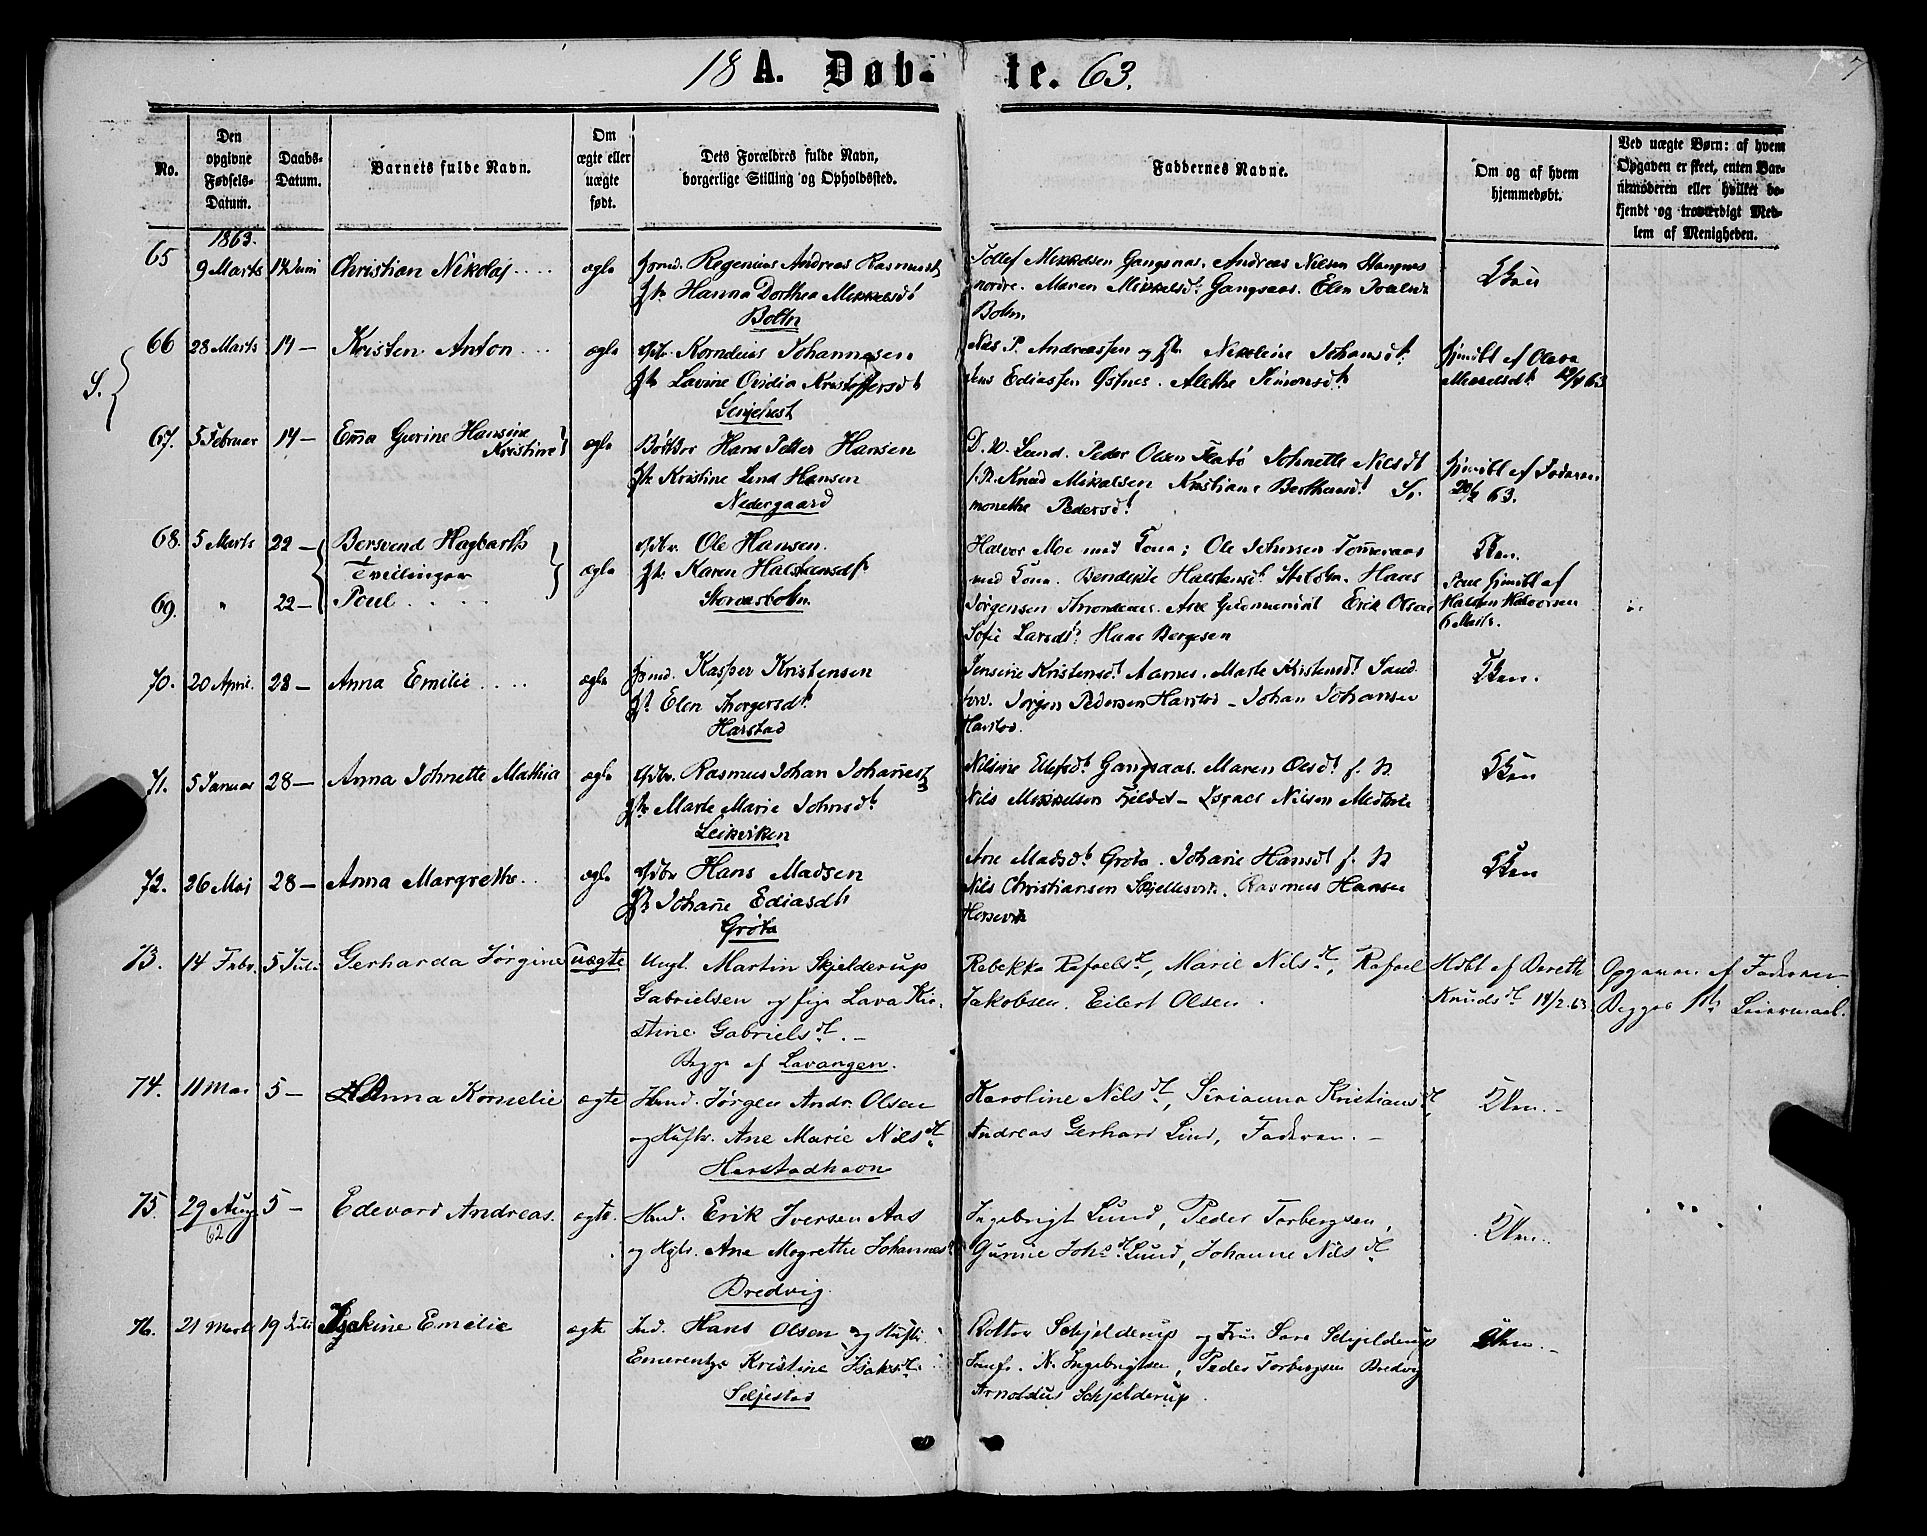 18 A. Døb- te. 63.
7
No.
Den opgivne Fødsels-Datum.
Daabs-Datum.
Barnets fulde Navn.
Om ægte eller uægte født.
Dets Forældres fulde Navn, borgerlige Stilling og Opholdssted.
Faddernes Navne.
Om og af hvem hjemmedøbt.
Ved uægte Børn: af hvem Opgaven er skeet, enten Barnemoderen eller hvilket bekjendt og troværdigt Medlem af Menigheden.
1863.
65 9 Marts 14 Juni Christian Nikolaj .... ægte
Regenius Andreas Rasmuss
Hanna Dorthea Mikkelsd
Boltn
Tollef Mikkelsen Gangsaas. Andreas Nilsen Stangnes
nordre. Maren Mikkelsdt Gangsaas. Elen
Boltn.
S.
66 28 Marts 14 — Kristen Anton ... ægte
Kornelius Johannesen
Lavine Ovidia Kristoffersdt
Nils P. Andreassen og Nikoline Johansdt
Jens Ediassen Østnes. Alethe Simonsdt
hjmdbt af Olava
Mikkelsdt
67. 5 Februar 14 — Emma Gurine Hansine
Kristine ægte
Bødker Hans Petter Hansen
Kristine Lind Hansen
Nedergaard
D. W. Lund. Peder Olsen Flatø Johnette Nilsdt
Knud Mikalsen Kristiane Berthausdt Si-
monethe Pedersdt
hjmdbt af Faderen
63.
68. 5 Marts 22 — Bersvend Hagbarth
Tvillinger ægte
69. " 22 — Poul ....
Ole Hansen.
Karen Halstensdt
Storvasbotn.
Halvor Moe med Kona; Ole Johnsen Tømmeraas
med Kona. Bendikte Halstensdt Hans
Jørgensen Ane Gudmunsdt Erik Olsen
Sofie Larsdt. Hans Bergesen
Poul hjmdbt af
Halsten Halvorsen
6 Marts.
70. 20 April. 28 — Anna Emilie .... ægte
Kasper Kristensen
Elen Thorgersdt
Harstad
Jensine Kristensdt Aarnes. Marte Kristensdt Sand
torv. Jørgen Pedersen Harstad – Johan Johansen
Harstad.
71. 5 Januar 28 — Anna Johnette Mathia ægte
Rasmus Johan Johaness
Marte Marie Johnsdt
Leikviken
Nilsine Gangsaas. Maren Olsdt
Nils Mikkelsen Fjeldet –
72. 26 Maj 28 — Anna Margrethe.. ægte
Hans Madsen
Johane Ediasdt
Grøta
Ane Madsdt Grøta. Johane Hansdt
Nils Christiansen Skjellesvik. Rasmus Hansen
Horsevik
73. 14 Febr. 5 Juli Gerharda Jørgine uægte
Ungk. Martin Skjelderup
Gabrielsen og Pige Lava Kri-
stine Gabrielsdt. —
Begge af Lavangen.
Rebekka Rafaelsdt, Marie Nilsdt, Rafael
Jakobsen. Eilert Olsen.
Hdbt af Bereth
Knudsdt 14/2. 63
Opgaven af Faderen.
Begges 1ste Leiermaal.
74. 11 Mai 5 — Hanna Kornelie ægte
Hmd. Jørgen Andr. Olsen
og Hustr. Ane Marie Nilsdt
Harstadhavn
Karoline Nilsdt, Sirianna Kristiansdt
Andreas Gerhard Lind, Faderen. —
75. 29 Aug. 62 5 — Edevard Andreas. ægte.
Hmd. Erik Iversen Aas
og Ane Mogrethe Johannesdt
Bredvig.
Ingebrigt Lund, Peder Torbergsen,
Gurine Johsdt Lund, Johanne Nilsdt
76. 21 Marts 19 Juli Isakine Emelie ægte
Hans Olsen og Hustr.
Emerentze Kristine Isaksdt
Seljestad
Doktor Schjelderup og Fru Sara Schjelderup
Jomfr. N. Ingebrigtsen, Peder Torbergsen Bredvig
Arnoldus Schjelderup.